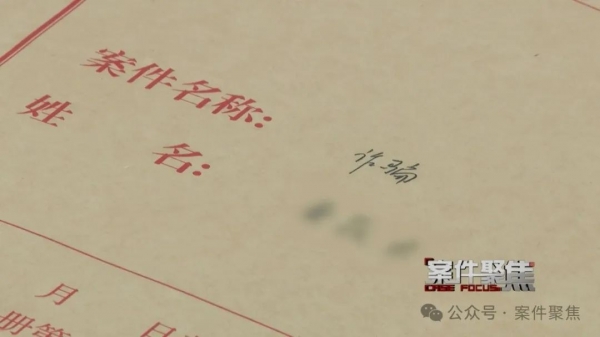 案件名称:
诈骗
姓 名:
月 日
册第
案件聚焦
CASE FOCUS
公众号·案件聚焦